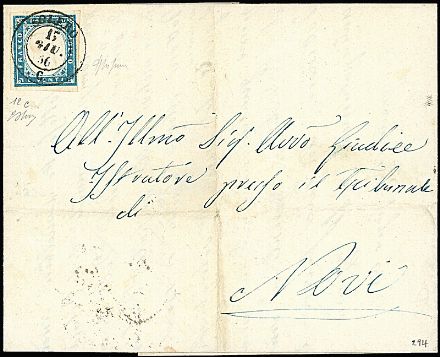 15
GIU
56
FRANCO
All'Illmo Sig. Avvo Giudice
Istrutore presso il Tribunale
di
Novi
294